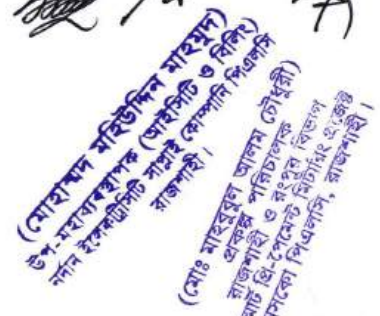 (মোহাম্মদ মহিউদ্দিন মাহমুদ)
উপ-মহাব্যবস্থাপক (আইসিটি ও বিলিং)
নর্দান ইলেকট্রিসিটি সাপ্লাই কোম্পানি পিএলসি
রাজশাহী।
(মোঃ মাহবুবুল আলম চৌধুরী)
প্রকল্প পরিচালক
রাজশাহী ও রংপুর বিভাগ
প্রি-পেমেন্ট মিটারিং প্রজেক্ট
পিএলসি, রাজশাহী।